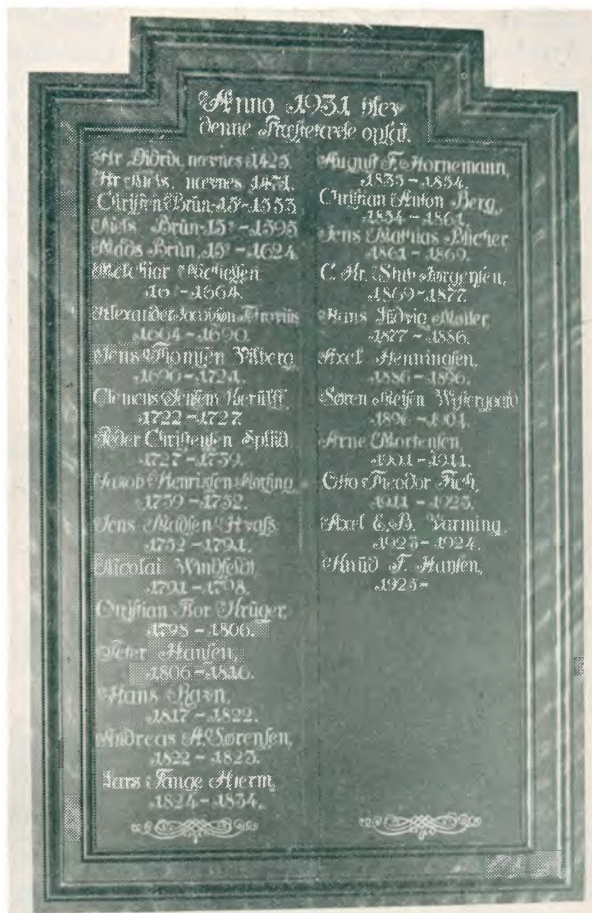 Anno 1931 blev
denne Præstetavle opsat.
Hr. nævnes 1425.
Hr. Niels, nævnes 1471.
Christen Brun 15 - 1553
Niels Brun 15 - 1595
Mads Brun, 15 - 1624
Melchior Michelsen
16 - 1664.
Alexander Jacobsen
1664 - 1690.
Jens Thomsen Viberg,
1690 - 1721.
Clemens Jensen
1722 - 1727
Peder Christensen Spliid
1727 - 1739.
Jacob Henriksen
1739 - 1752.
Jens Madsen Hvass,
1752 - 1791.
Nicolai Windfeldt
1791 - 1798.
Christian Bor Krüger,
1798 - 1806.
Peter Hansen,
1806 - 1816.
Hans Ravn,
1817 - 1822.
Andreas A. Sørensen,
1822 - 1823.
Lars Tange Hierm,
1824 - 1834.
August F. Hornemann,
1835 - 1854.
Christian Anton Berg,
1854 - 1861.
Jens Mathias Blicher
1861 - 1869.
C. Hr. Stub Jørgensen,
1869 - 1877.
Hans Ludvig Møller,
1877 - 1886.
Axel Henningsen,
1886 - 1896.
Søren Nielsen Westergaard
1896 - 1901.
Arne Mortensen
1901 - 1911.
Otto Theodor Fich,
1911 - 1923.
Axel E.B. Varming,
1923 - 1924.
Knud F. Hansen,
1925 -